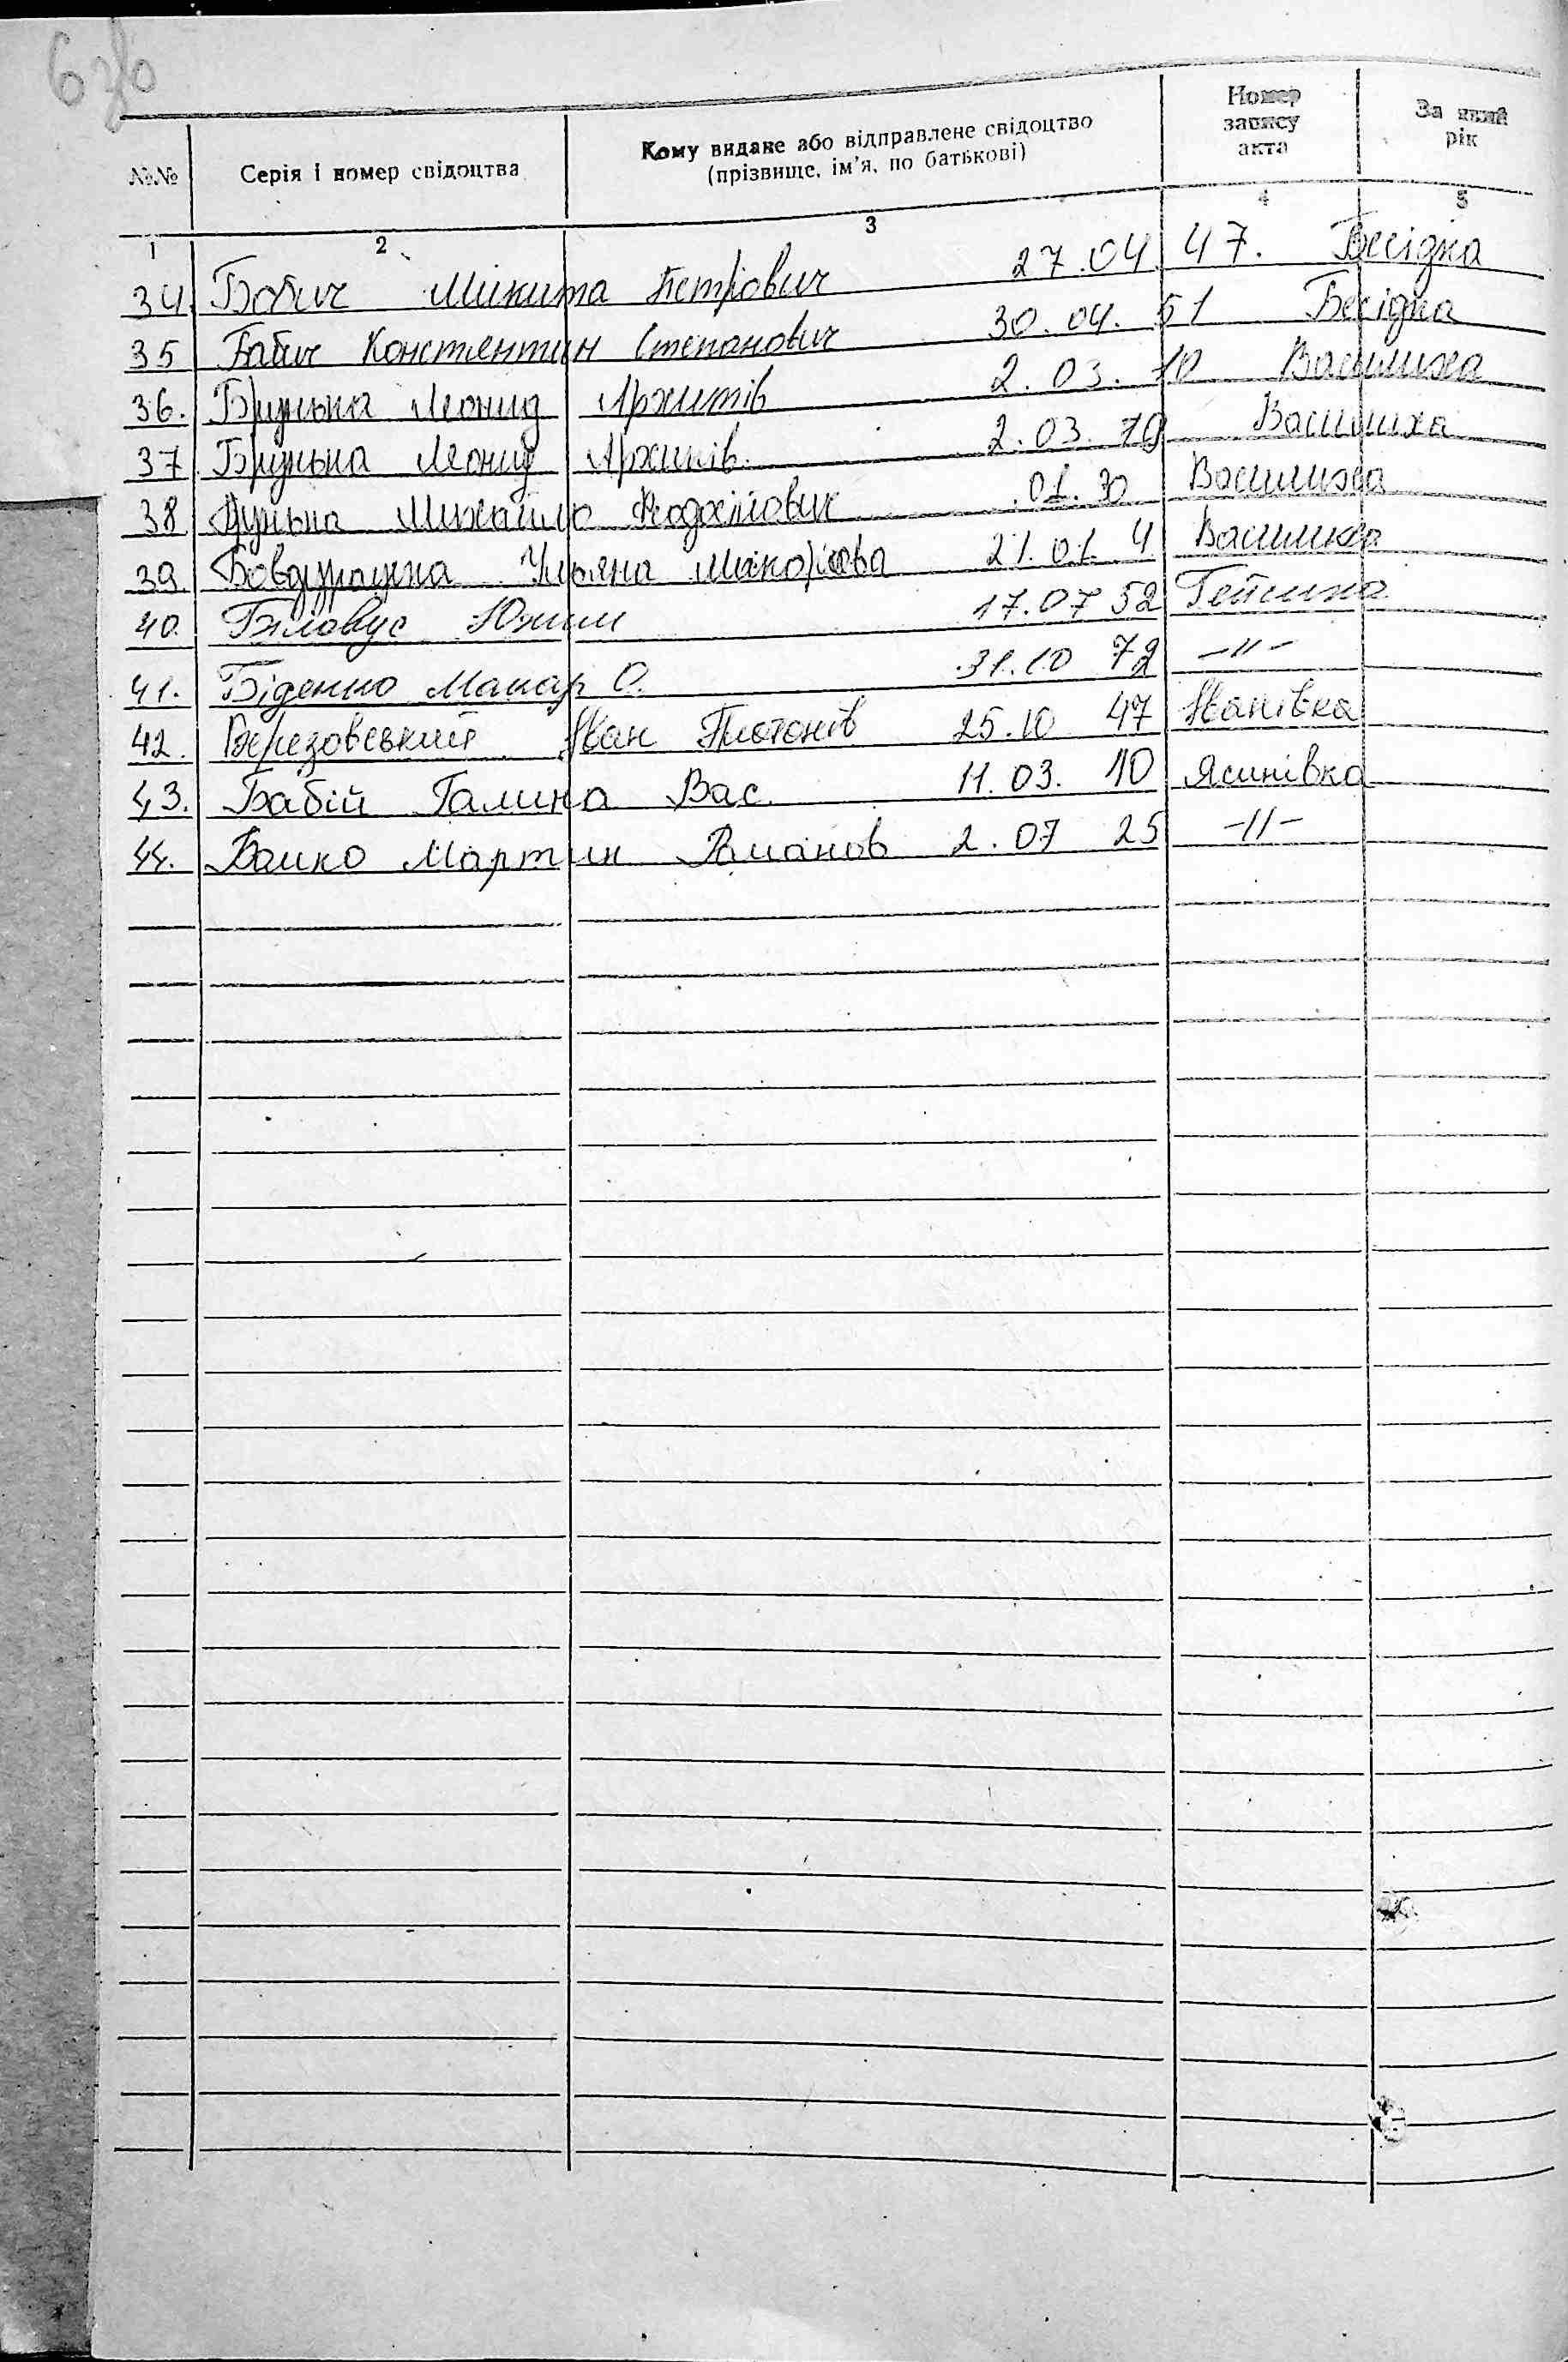 6зв
№№ Серія і номер свідоцтва Кому видане або відправлене свідоцтво (прізвище, ім'я, по батькові) Номер запису акта За який рік
1 2 3 4 5
34. Бабич Микита Петрович 27.04. 47. Бесідка
35 Бабич Констянтин Степанович 30.04. 51 Бесідка
36. Брунька Леонид Архипів 2.03. 10 Василиха
37. Брунька Леонид Архипів. 2.03. 10 Василиха
38 Михайло .01. 30 Василиха
39. Уляна 21.01. 4 Василиха
40. Біловус Юхим 17.07 52 Гейсиха
41. Біденко Макар О. 31.10 72 -//-
42. Березовський Іван Платонів 25.10 47 Іванівка
43. Бабій Галина Вас. 11.03. 10 Ясинівка
44. Мартин 2.07 25 -//-